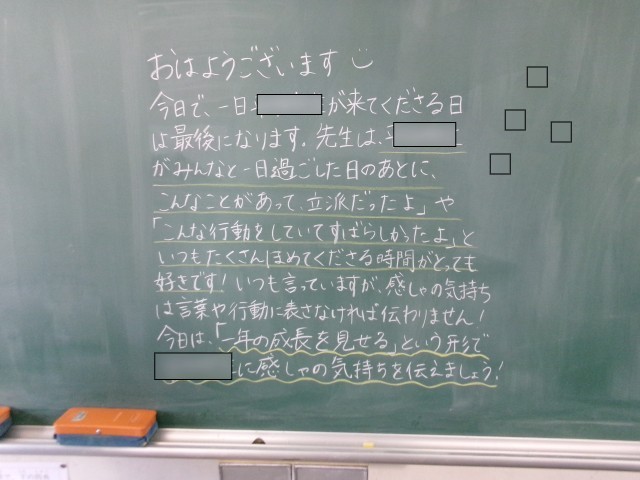 おはようございます
今日で、一日 が来てくださる日
は最後になります。先生は、
がみんなと一日過ごした日のあとに、
こんなことがあって、立派だったよ」や
「こんな行動をしていてすばらしかったよ」と
いつもたくさんほめてくださる時間がとっても
好きです!いつも言っていますが、感しゃの気持ち
は言葉や行動に表さなければ伝わりません!
今日は、「一年の成長を見せる」という形で
に感しゃの気持ちを伝えましょう!